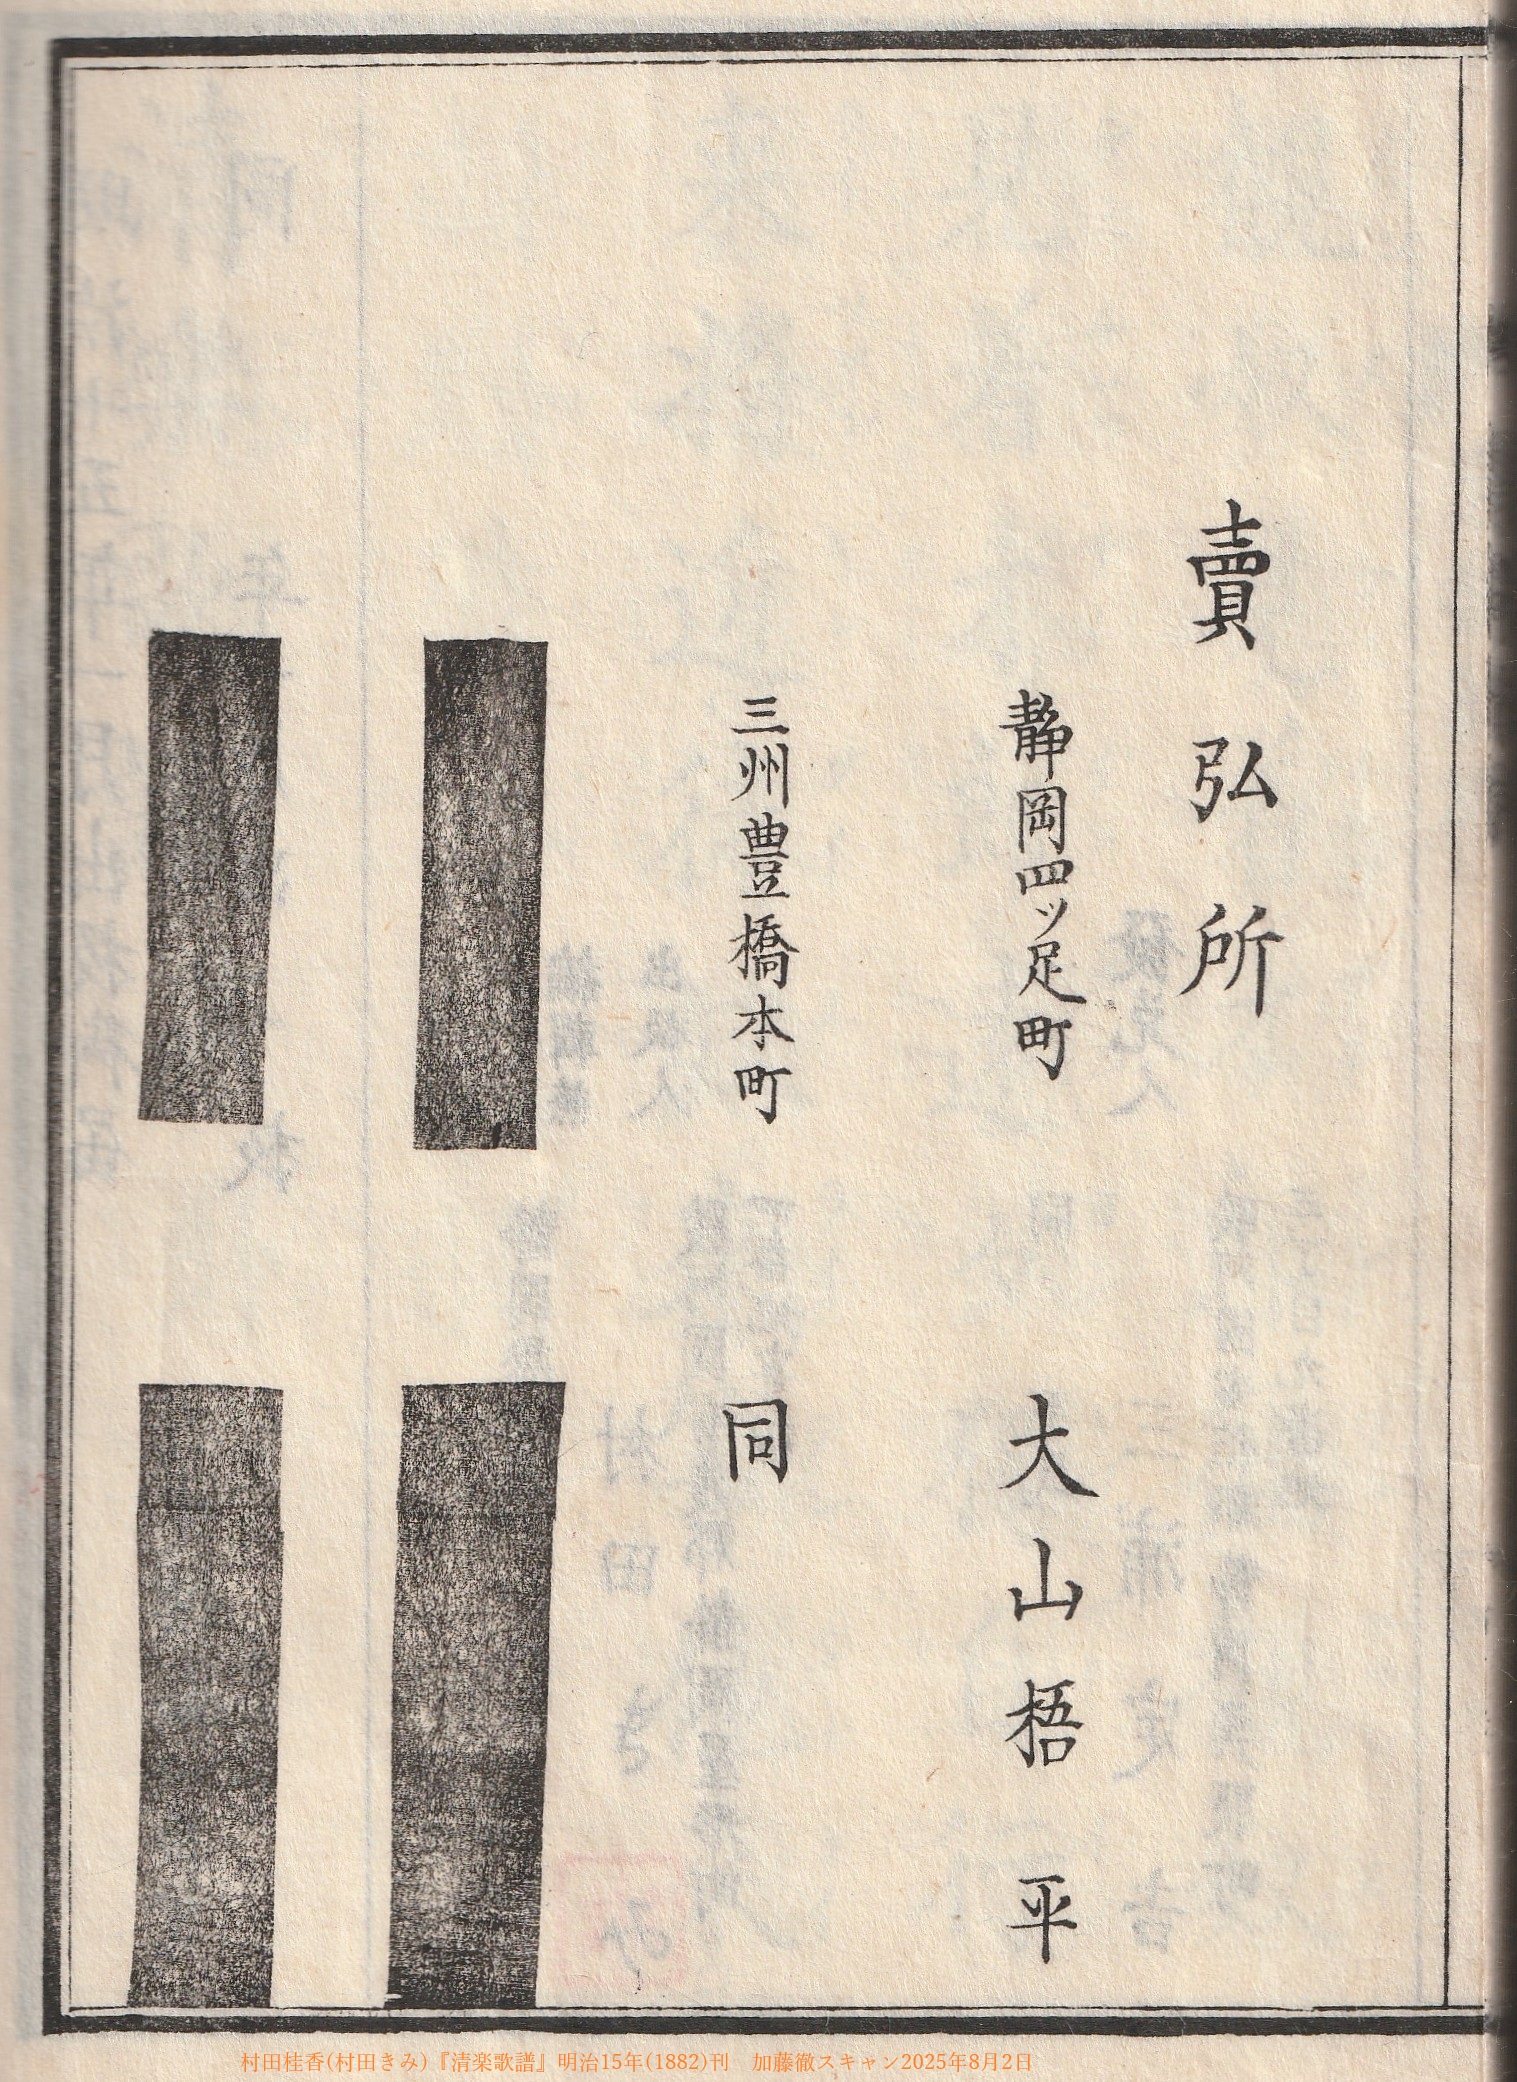 賣弘所
静岡四ッ足町
大山梧平
三州豊橋本町
同
村田桂香(村田きみ)『清楽歌譜』明治15年(1882)刊　加藤徹スキャン2025年8月2日